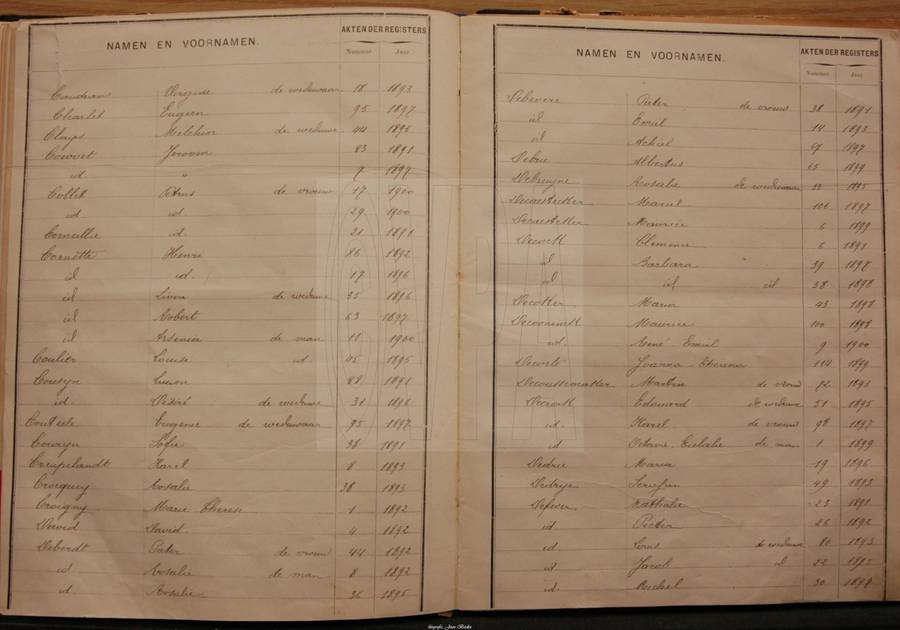 NAMEN EN VOORNAMEN. AKTEN DER REGISTERS
Nummer. Jaar
de weduwnaar 18 1893
Charlet Eugeen 95 1897
Melchior de weduwe 44 1895
Jeroom 83 1891
id " 7 1897
Collet Petrus de vrouw 17 1900
id id. 29 1900
Corneillie id. 21 1891
Cornette Henri 86 1892
id id. 19 1896
id Livin de weduwe 35 1896
id Robert 63 1897
id Arsenia de man 11 1900
Coulier Louise id 45 1895
Cousyn Lucien 88 1891
id. Désiré de weduwe 31 1896
Eugenie de weduwnaar 95 1897
Sofie 36 1891
Creupelandt Karel 8 1893
Rosalie 38 1893
Marie Therese 1 1892
David David 4 1892
Pieter de vrouw 44 1892
id Rosalie de man 8 1892
id Rosalie 36 1895
NAMEN EN VOORNAMEN. AKTEN DER REGISTERS
Nummer. Jaar
Debevere Pieter de vrouw 38 1891
id Emiel 14 1893
id Achiel 67 1897
Debrie Albertus 65 1899
Debruyne Rosalie de weduwnaar 33 1895
Decaesteker Marcel 106 1897
Decaesteker Maurice 6 1899
Decock Clemence 6 1891
id Barbara 39 1897
id id id 38 1898
Decoker Maria 43 1898
Decooninck Maurice 100 1898
id. René Emiel 9 1900
Joanna-Theresia 114 1899
Martin de vrouw 72 1893
Edouard de weduwe 51 1895
id. Karel de vrouw 98 1897
id Octavie Eulalie de man 1 1899
Dedrie Maria 19 1896
Dedrije Serafien 49 1893
Nathalie 23 1891
id Pieter 26 1892
id de weduwe 80 1893
id. Jacob id 22 1895
id. Michel 30 1898
fotografie Jean Bockx